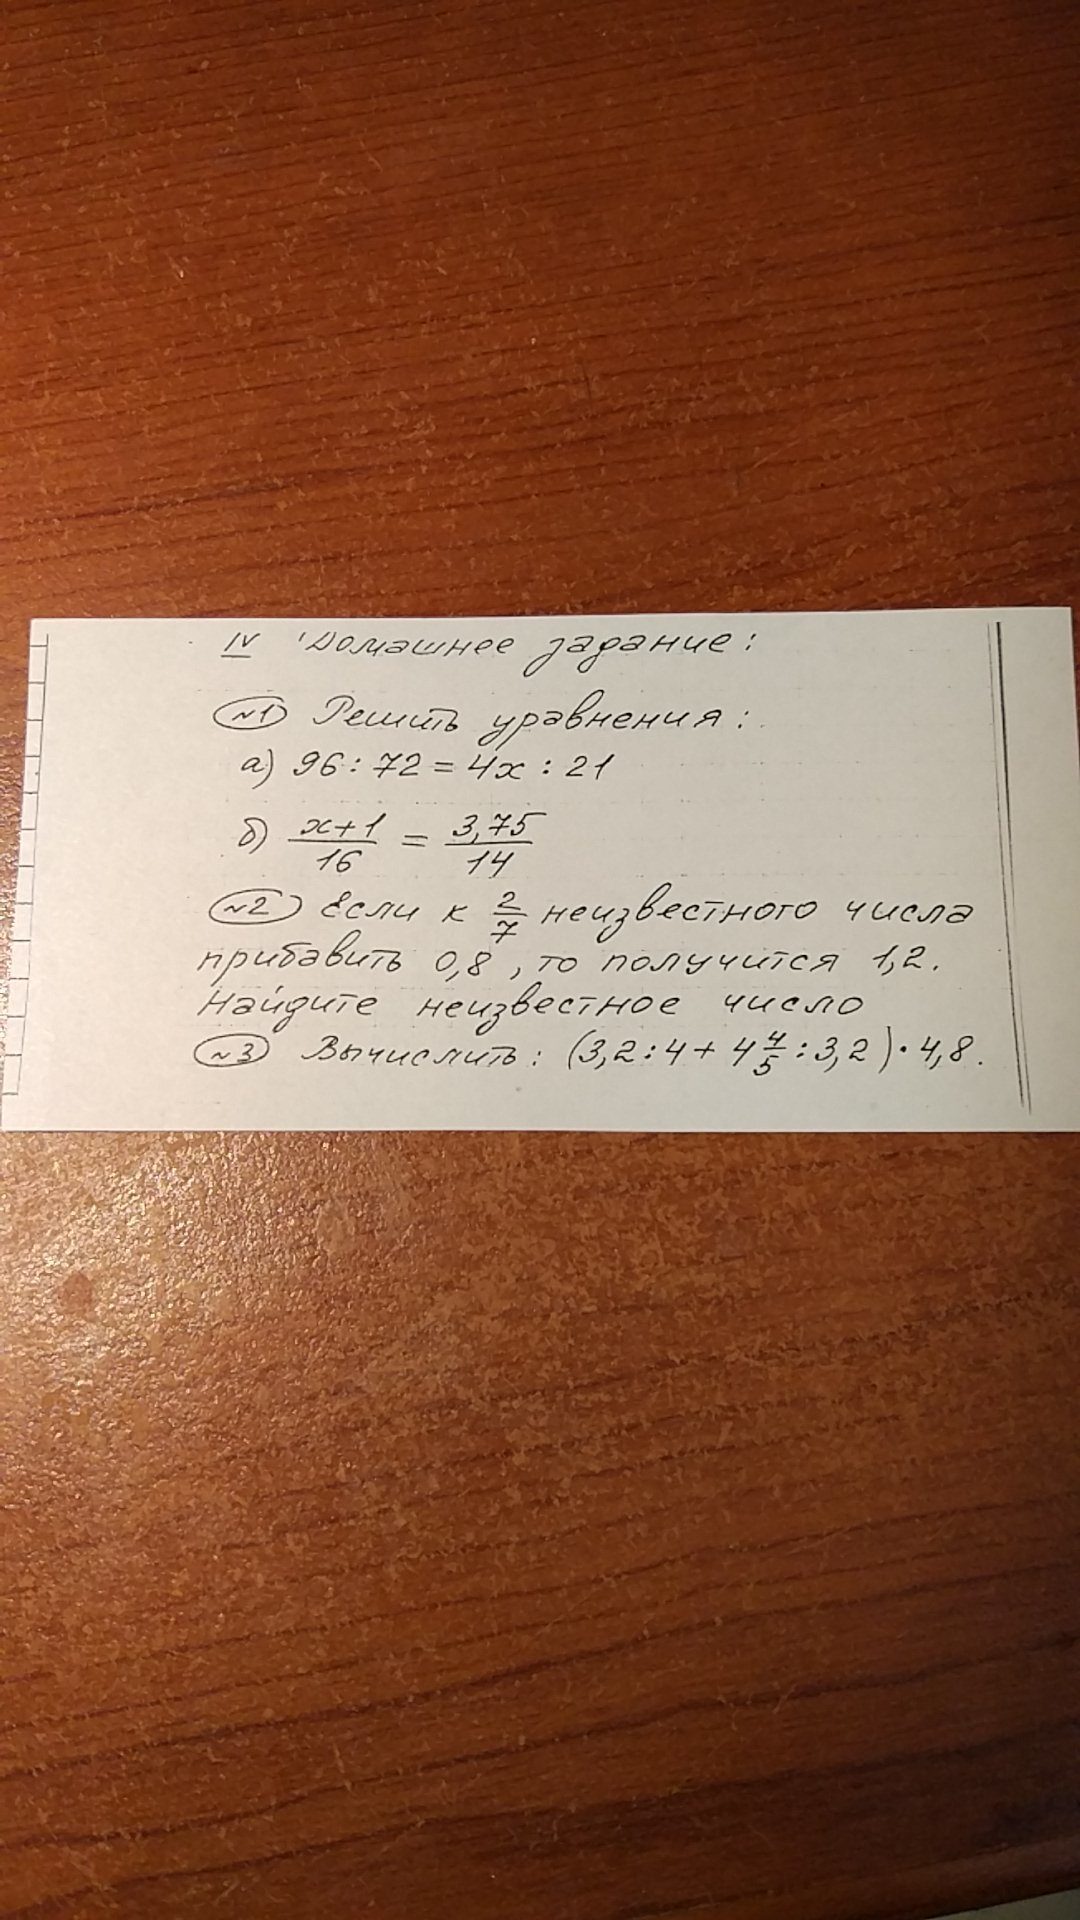 IV Домашнее задание:
№1 Решить уравнения:
а) 96 : 72 = 4x : 21
б) \frac{x+1}{16} = \frac{3,75}{14}
№2 Если к \frac{2}{7} неизвестного числа
прибавить 0,8, то получится 1,2.
Найдите неизвестное число
№3 Вычислить: (3,2 : 4 + 4\frac{4}{5} : 3,2) · 4,8.